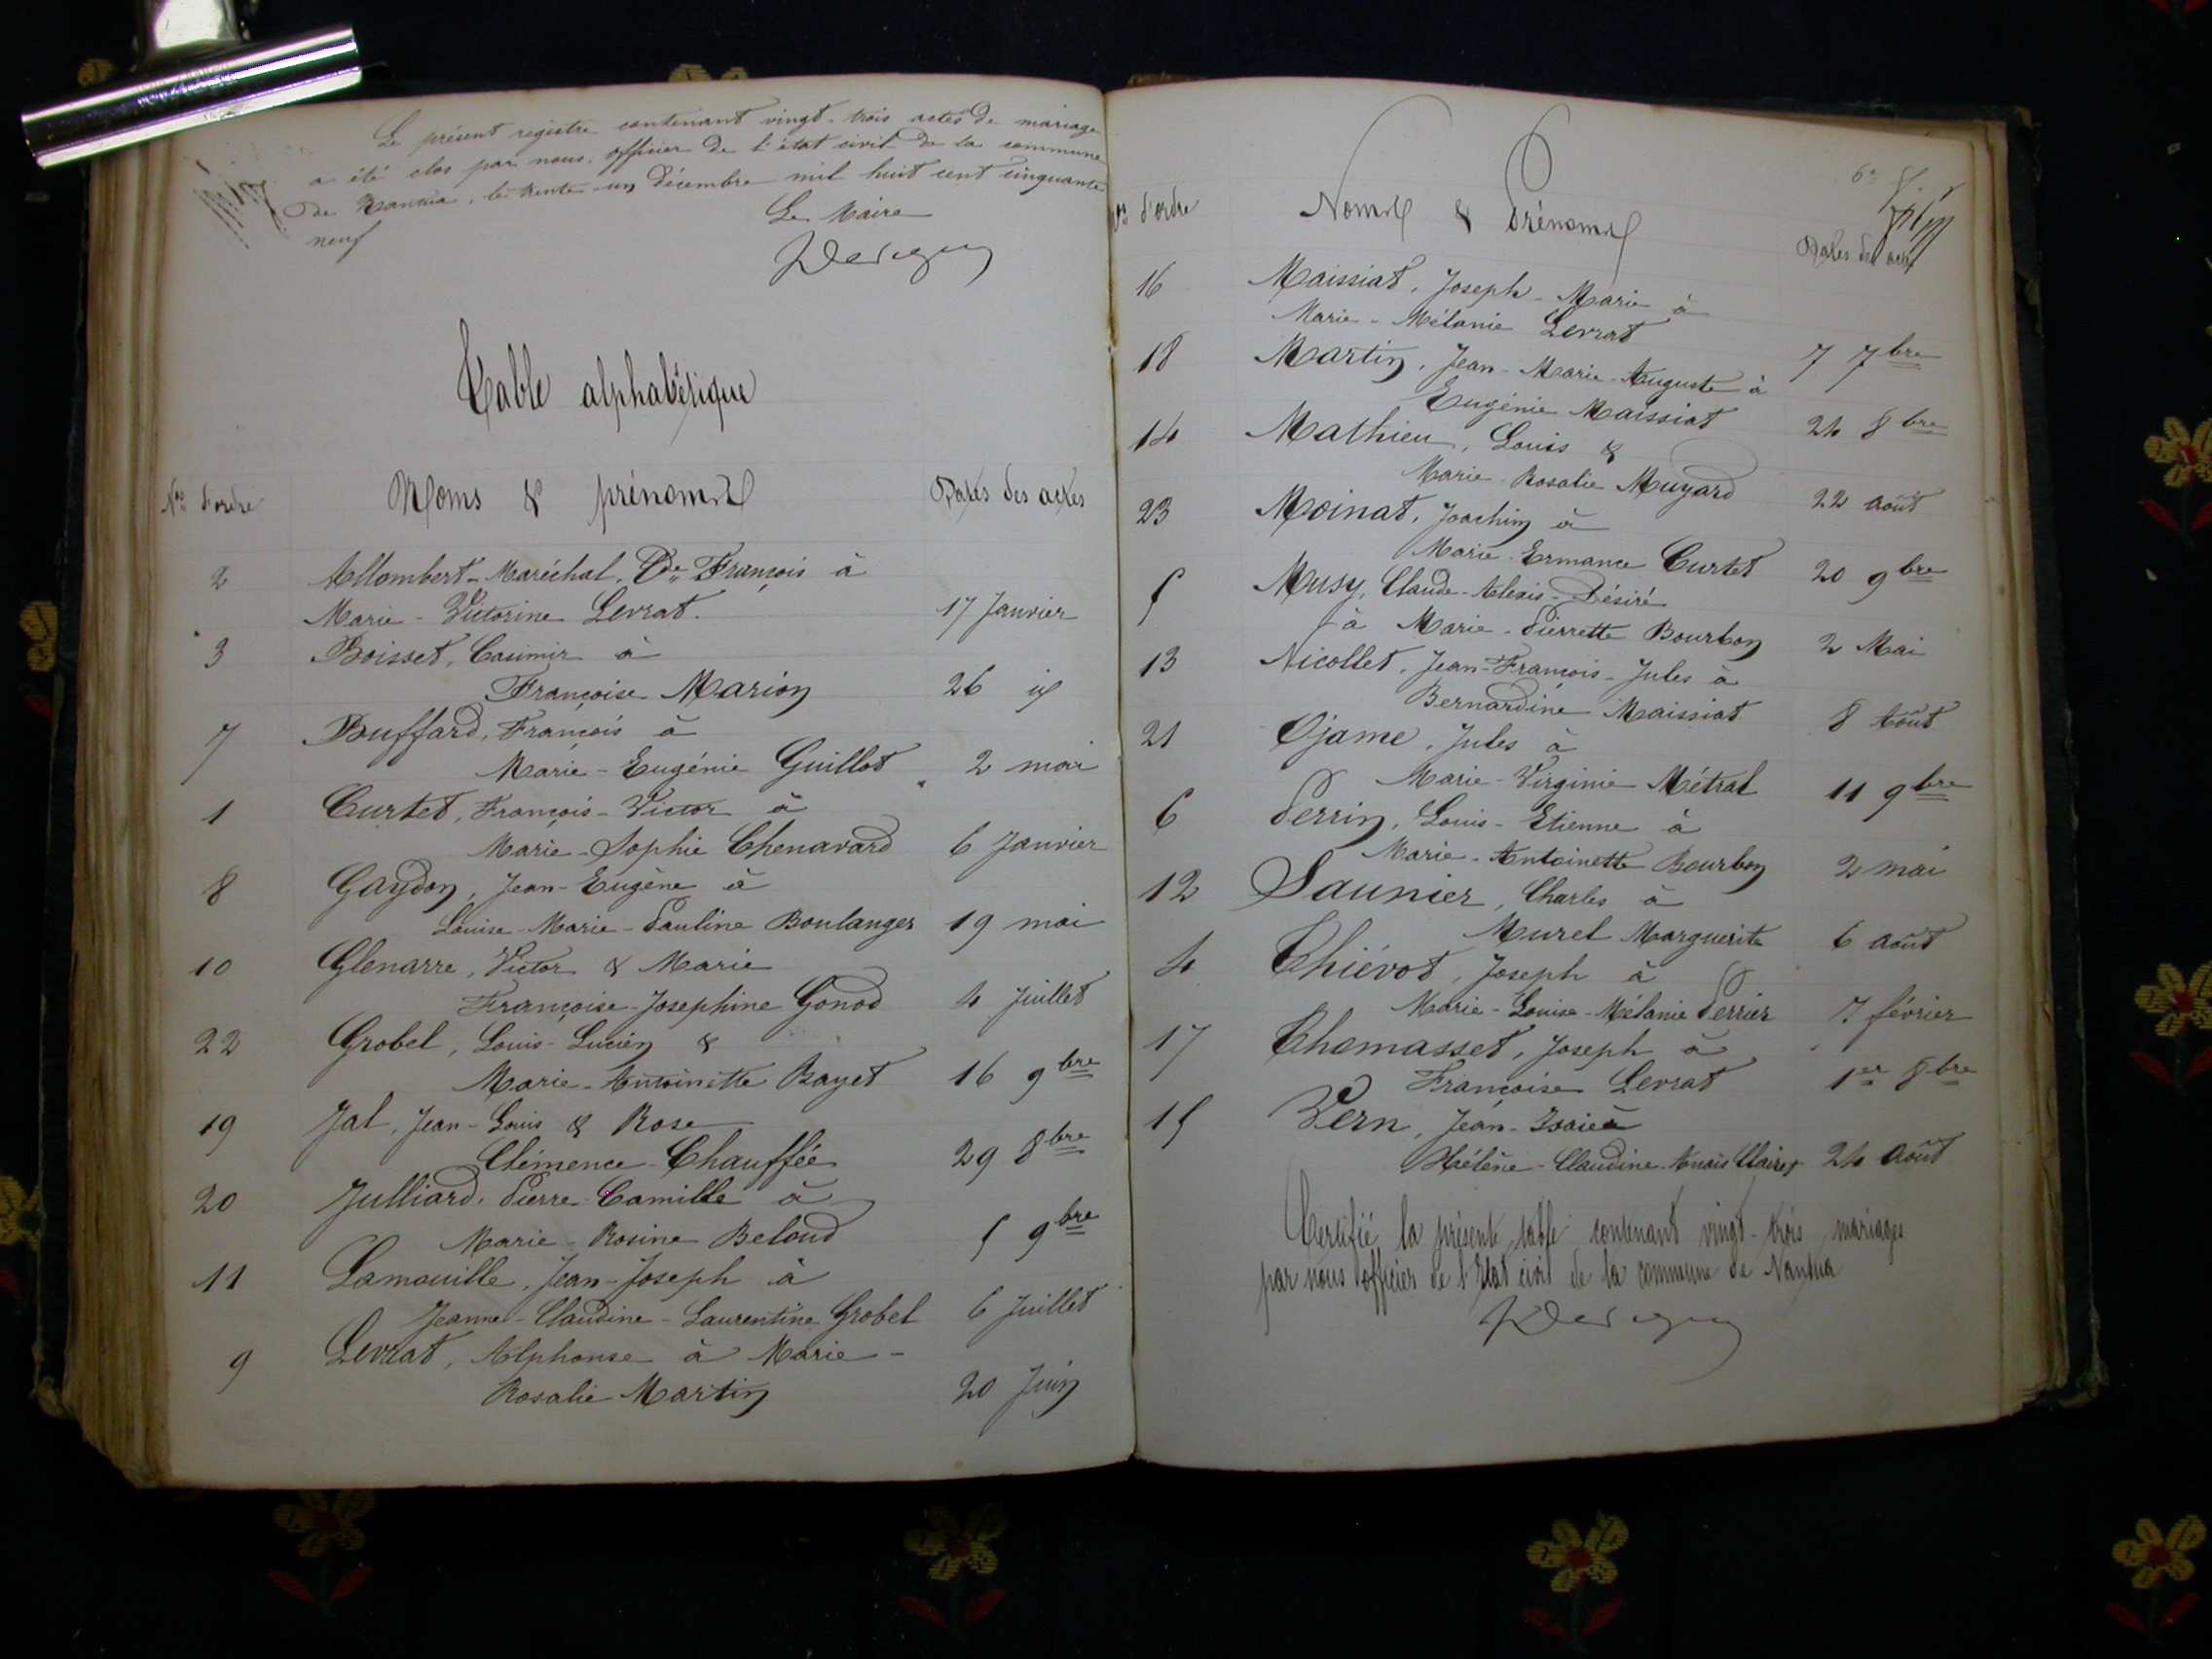 Le présent registre contenant vingt-trois actes de mariage
a été clos par nous, officier de l'état civil de la commune
de Nantua, le trente-un décembre mil huit cent cinquante
neuf
Le Maire
Table alphabétique
Nos d'ordre Noms & prénoms Dates des actes
2 Allombert-Maréchal, Vde François à
Marie-Victorine Levrat. 17 Janvier
3 Boisset, Casimir à
Françoise Marion 26 id
7 Bouffard, François à
Marie-Eugénie Guillot 2 mai
1 Curtet, François-Victor à
Marie-Sophie Chenavard 6 Janvier
8 Gaydon, Jean-Eugène à
Louise-Marie-Pauline Boulanger 19 mai
10 Glenarre, Victor & Marie
Françoise-Josephine Gonod 4 Juillet
22 Grobel, Louis-Lucien &
Marie-Antoinette Bayet 16 9bre
19 Jal, Jean-Louis & Rose
Clémence Chauffée 29 8bre
20 Julliard, Pierre Camille à
Marie-Rosine Beloud 5 9bre
11 Lamouille, Jean-Joseph à
Jeanne-Claudine-Laurentine Grobel 6 Juillet
9 Levrat, Alphonse à Marie-
Rosalie Martin 20 Juin
Nos d'ordre Noms & Prénoms Dates des actes
16 Maissiat, Joseph-Marie à
Marie-Mélanie Levrat 7 7bre
18 Martin, Jean-Marie-Auguste à
Eugénie Maissiat 24 8bre
14 Mathieu, Louis &
Marie Rosalie Muyard 22 août
23 Moinat, Joachim à
Marie-Ermance Curtet 20 9bre
5 Musy, Claude-Alexis-Désiré
à Marie-Pierrette Bourbon 2 Mai
13 Nicollet, Jean-François-Jules à
Bernardine Maissiat 8 Août
21 Ojame, Jules à
Marie-Virginie Métral 11 9bre
6 Perrin, Louis-Etienne à
Marie-Antoinette Bourbon 2 mai
12 Saunier, Charles à
Murel Marguerite 6 août
4 Thiévot, Joseph à
Marie-Louise-Mélanie Perrier 7 février
17 Thomasset, Joseph à
Françoise Levrat 1er 8bre
15 Vern, Jean-Isaïe à
Hélène-Claudine-Anaïs Clairet 24 Août
Certifié la présente table contenant vingt-trois mariages
par nous officier de l'Etat civil de la commune de Nantua